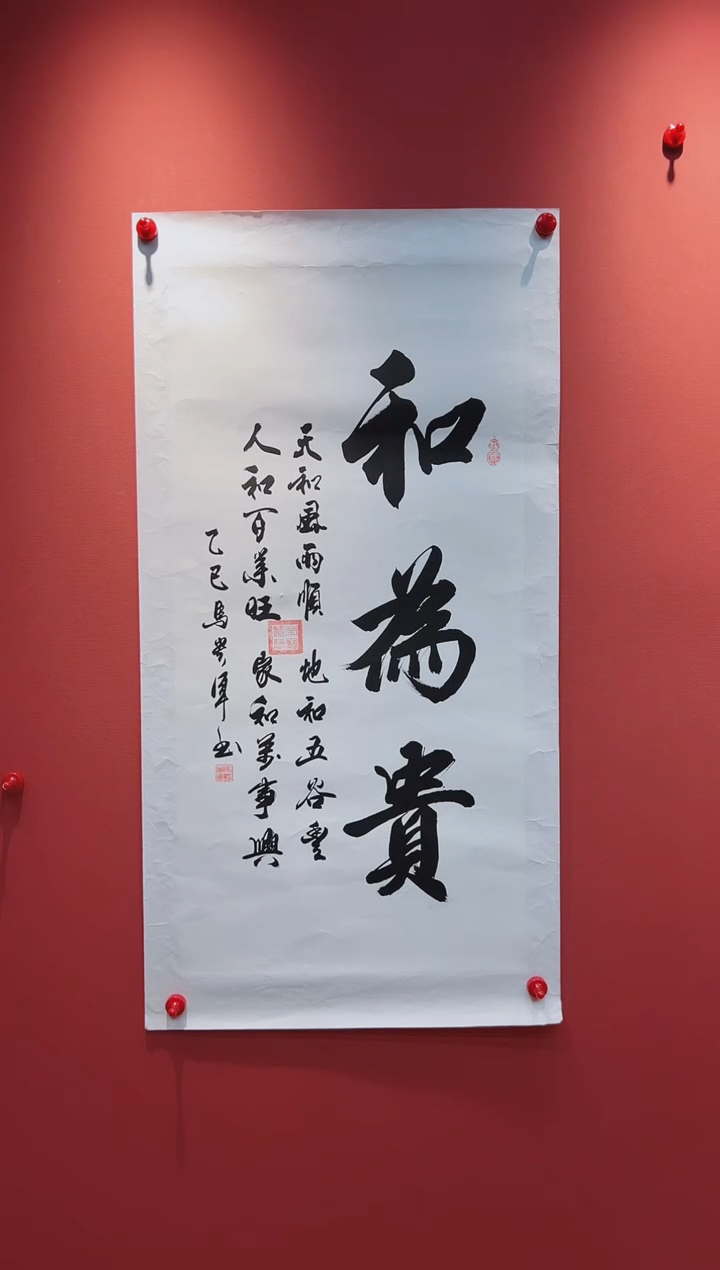 和為貴
天和風雨順 地和五谷豐
人和百業旺 家和萬事興
乙巳馬